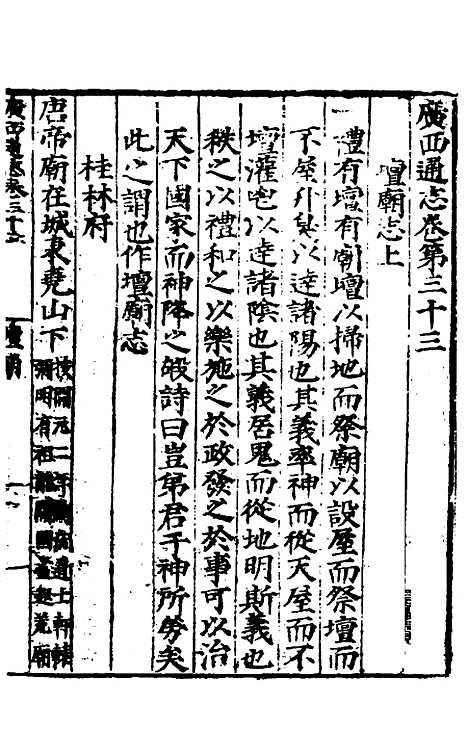 廣西通志卷第三十三
壇廟志上
禮有壇有廟壇以掃地而祭廟以設屋而祭壇而
不屋升臭以達諸陽也其義率神而從天屋而不
壇灌鬯以達諸陰也其義居鬼而從地明斯義也
秩之以禮和之以樂施之於政發之於事可以治
天下國家而神降之嘏詩曰豈弟君子神所勞矣
此之謂也作壇廟志
桂林府
唐帝廟在城東堯山下
按開元二年 道士軒轅
彌明有祖 堯廟
廣西通志卷三十三
壇廟
一